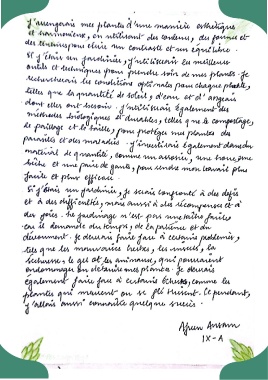 J'arrangerais mes plantes d'une manière esthétique
et harmonieuse, en utilisant des couleurs, des formes et
des textures pour créer un contraste et un équilibre.
Si j'étais un jardinier, j'utiliserais les meilleurs
outils et techniques pour prendre soin de mes plantes. Je
rechercherais les conditions optimales pour chaque plante,
telles que la quantité de soleil, d'eau et d'
dont elles ont besoin. J'utiliserais également des
méthodes biologiques et durables, telles que le compostage,
le paillage et la taille, pour protéger mes plantes des
parasites et des maladies. J'investirais également dans du
matériel de quantité, comme un arrosoir, une
bêche et une paire de gants, pour rendre mon travail plus
facile et plus efficace.
Si j'étais un jardinier, je serais confronté à des défis
et à des difficultés, mais aussi à des récompenses et à
des joies. Le jardinage n'est pas une tâche facile
car il demande du temps, de la patience et du
dévouement. Je devrais faire face à certains problèmes,
tels que les mauvaises herbes, les insectes, la
sécheresse, le gel et les animaux, qui pourraient
endommager ou détruire mes plantes. Je devrais
également faire face à certains échecs, comme les
plantes qui meurent ou se flétrissent. Cependant,
j'allais aussi connaître quelque succès.
IX-A